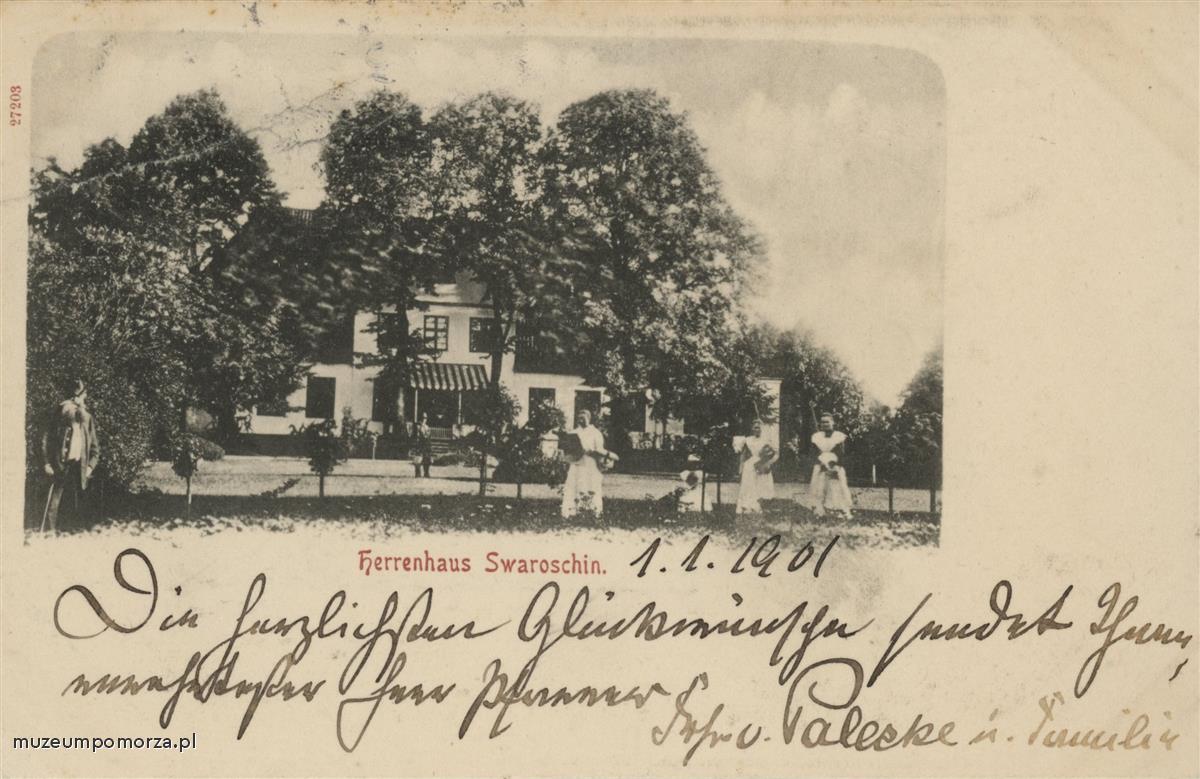 27203
Herrenhaus Swaroschin. 1.1.1901
Die herzlichsten Glückwünsche sendet Ihnen,
verehrtester Herr Pfarrer
Frhr. v. Paleske u. Familie
muzeumpomorza.pl